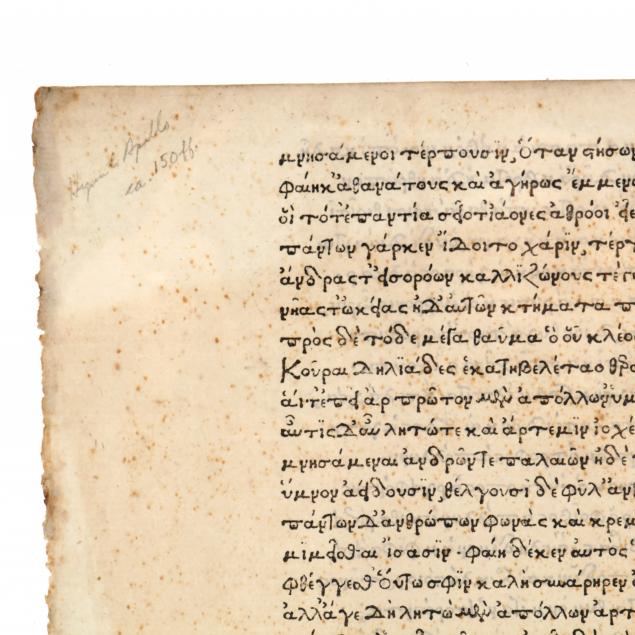 Hymn Apollo
ca. 150 ff.
μνησάμενοι τέρπουσιν, ὅταν στήσων
φαίη κ' ἀθανάτους καὶ ἀγήρως ἔμμεν
οἳ τότ' ἐπαντία σεῖο τ' ἰάονες ἀθρόοι εἶε
πάντων γάρ κεν ἴδοιτο χάριν, τέρ
ἄνδρας τ' εἰσορόων καλλιζώνους τε γυ
νῆας τ' ὠκείας ἠδ' αὐτῶν κτήματα π
πρὸς δὲ τόδε μέγα θαῦμα ὃ οὖ κλέο
Κοῦραι Δηλϊάδες ἑκατηβελέταο θε
αἵ τ' ἐπεὶ ἂρ πρῶτον μὲν ἀπόλλων' ὑμ
αὖτις δ' αὖ λητώ τε καὶ ἄρτεμϊν ἰοχέ
μνησάμεναι ἀνδρῶν τε παλαιῶν ἠδὲ
ὕμνον ἀείδουσϊν, θέλγουσϊ δὲ φῦλ' ἀν
πάντων δ' ἀνθρώπων φωνὰς καὶ κρεμ
μιμεῖσθαι ἴσασϊν· φαίη δέ κεν αὐτὸς
φθέγγεσθ' οὕτω σφϊν καλὴ συνάρηρεν
ἀλλ' ἄγε δὴ λητὼ μὲν ἀπόλλων ἀρτ